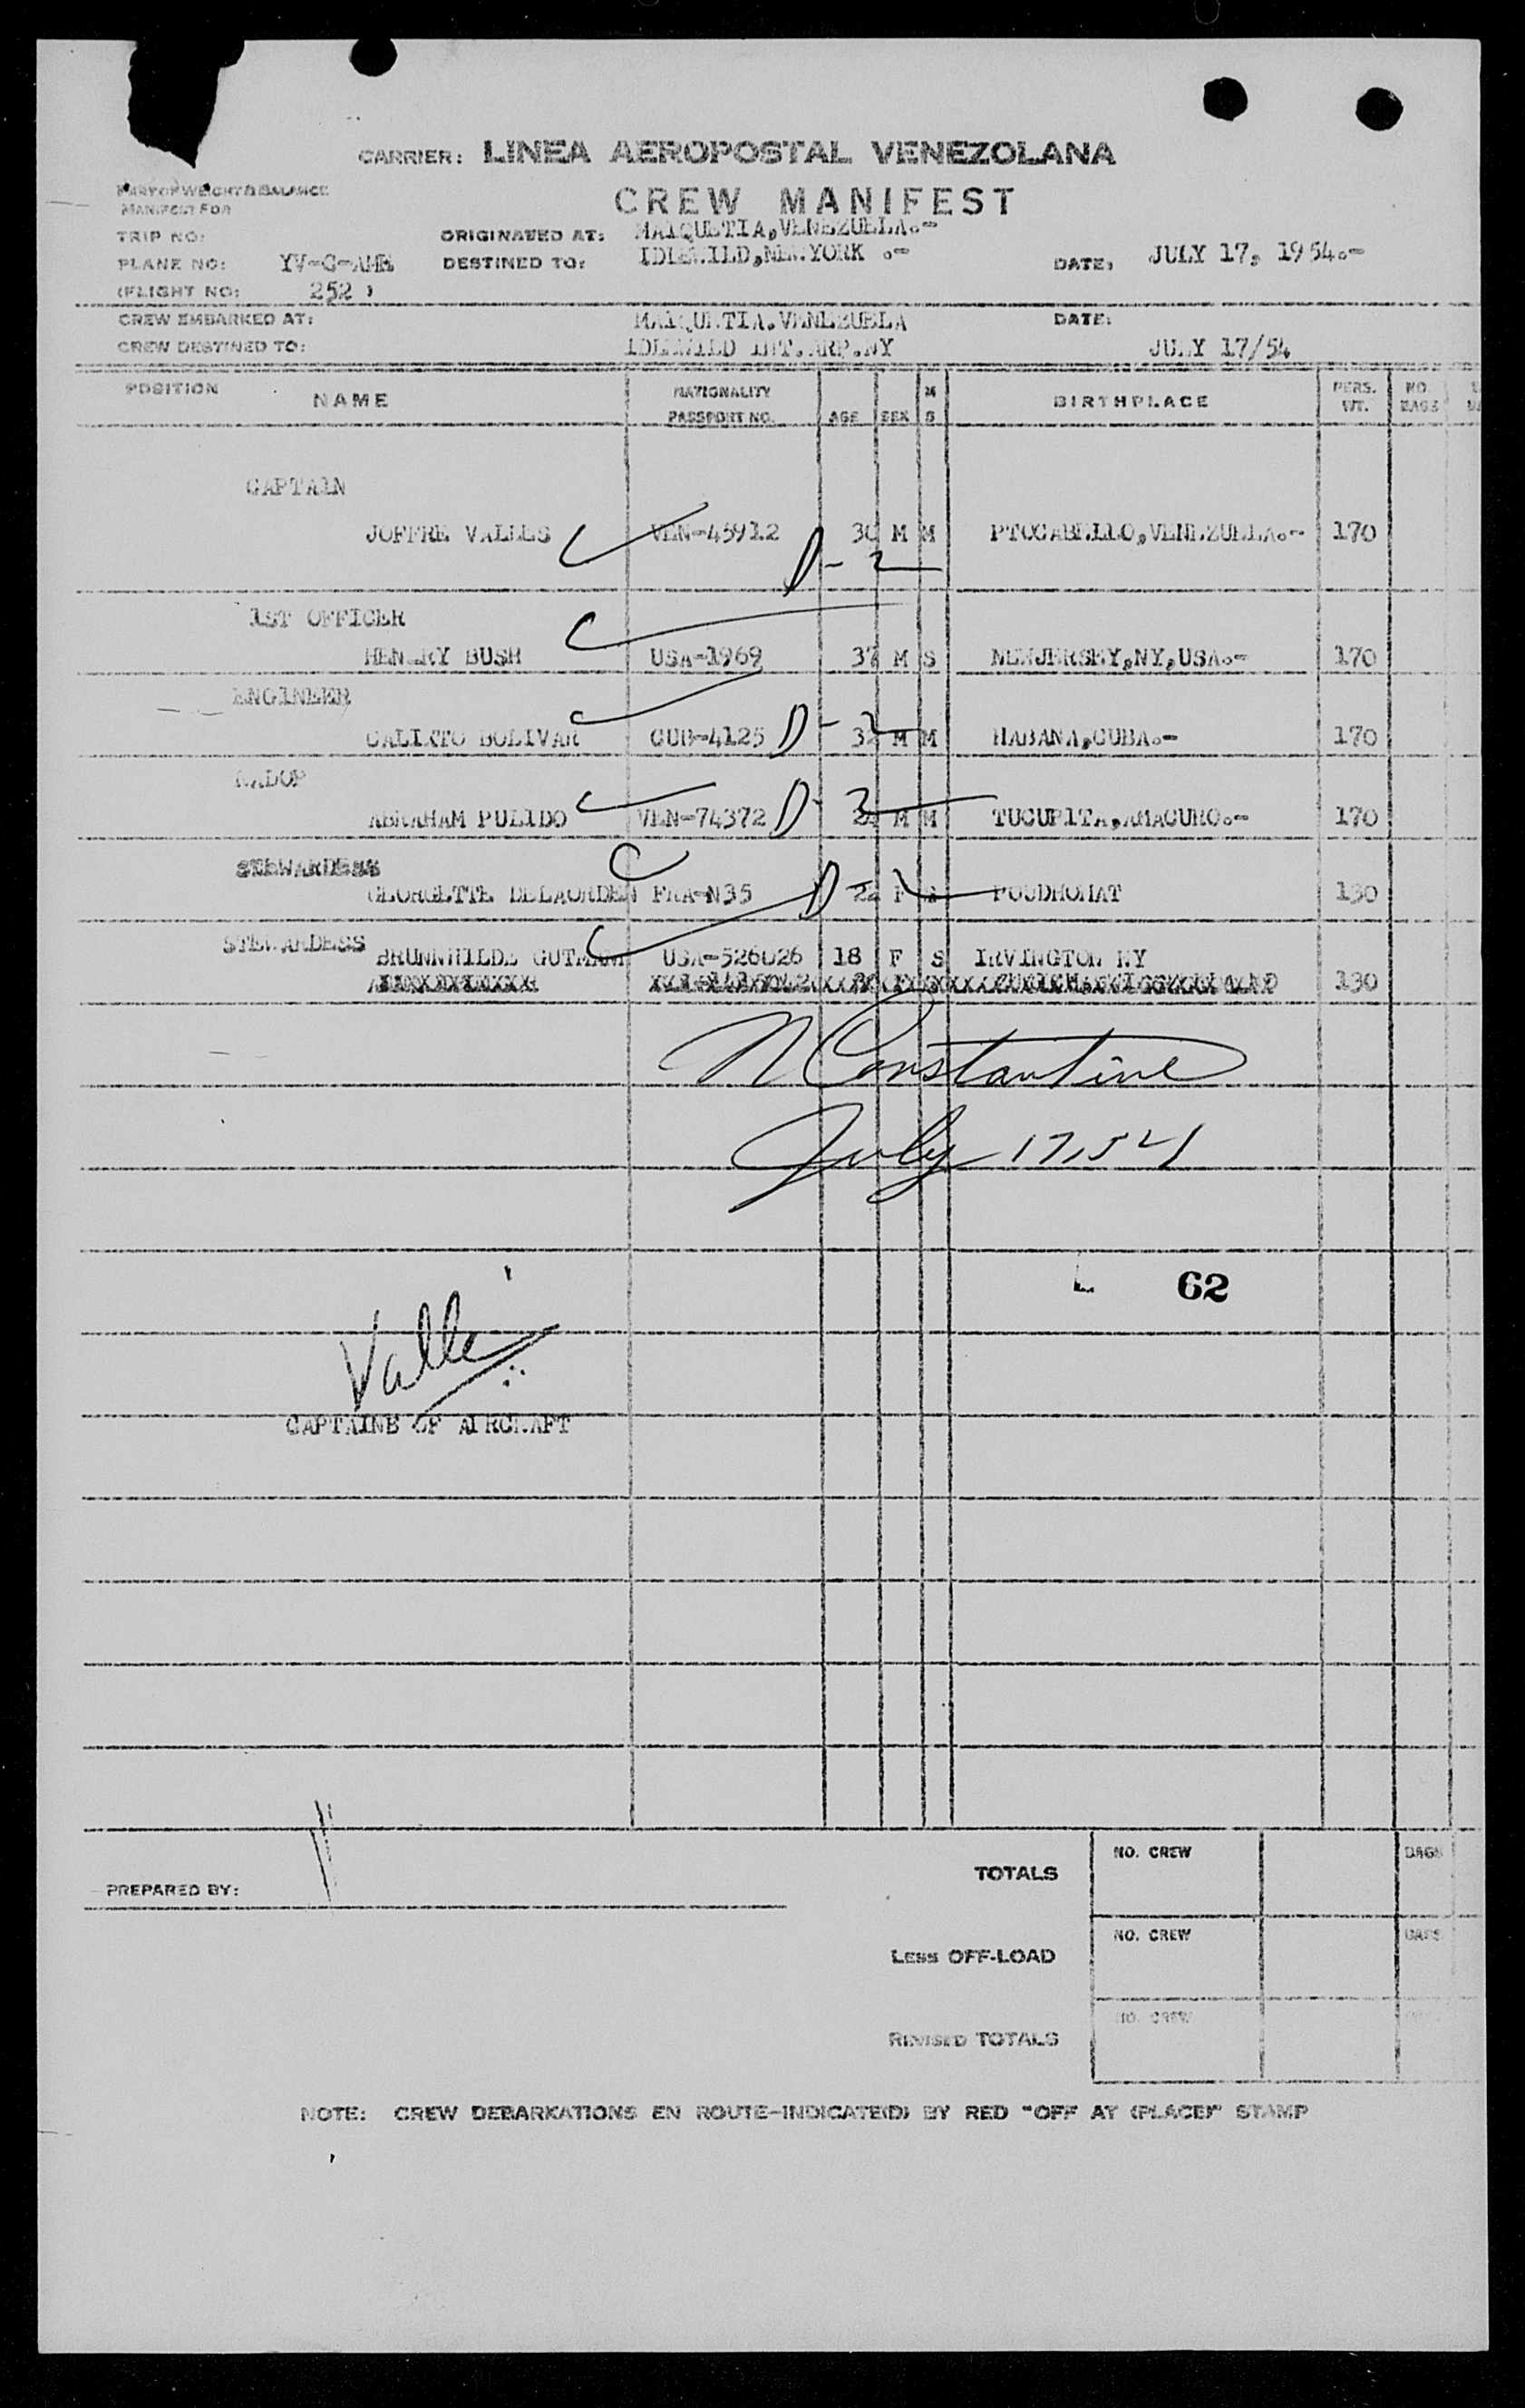 CARRIER: LINEA AEROPOSTAL VENEZOLANA
PART OF WEIGHT & BALANCE
MANIFEST FOR
CREW MANIFEST
TRIP NO: ORIGINATED AT: MAIQUETIA,VENEZUELA.-
PLANE NO: YV-C- DESTINED TO: IDLEWILD,NEW.YORK .- DATE: JULY 17, 1954.-
(FLIGHT NO: 252 )
CREW EMBARKED AT: MAIQUETIA.VENEZUELA DATE:
CREW DESTINED TO: IDLEWILD INT.ARP.NY JULY 17/54
POSITION NAME NATIONALITY PASSPORT NO. AGE SEX M S BIRTHPLACE PERS. WT. NO. BAGS
CAPTAIN
JOFFRE VALLES VEN-45912 30 M M PTOCABELLO,VENEZUELA.- 170
D-2
1ST OFFICER
HENRY BUSH USA-1969 37 M S NEWJERSEY,NY,USA.- 170
ENGINEER
CALIXTO BOLIVAR CUB-4125 D-2 M M HABANA,CUBA.- 170
RADOP
ABRAHAM PULIDO VEN-74372 D-2 M M TUCUPITA,AMACURO.- 170
STEWARDESS
GEORGETTE DELAORDEN FRA-N35 D-2 F POUDHOMAT 130
STEWARDESS BRUNNHILDE GUTMANN USA-526026 18 F S IRVINGTON NY
130
N Constantine
July 17, 54
62
Valle
CAPTAINE OF AIRCRAFT
PREPARED BY:
TOTALS NO. CREW BAGS
LESS OFF-LOAD NO. CREW BAGS
REVISED TOTALS NO. CREW
NOTE: CREW DEBARKATIONS EN ROUTE-INDICATE(D) BY RED "OFF AT (PLACE)" STAMP